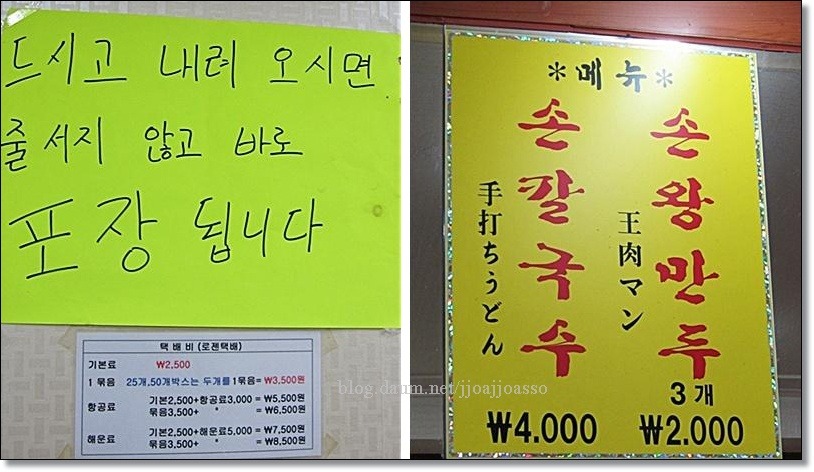 드시고 내려 오시면
줄서지 않고 바로
포장 됩니다
택 배 비 (로젠택배)
기본료 ₩2,500
1 묶음 25개,50개박스는 두개를 1묶음= ₩3,500원
항공료 기본2,500+항공료3,000 = ₩5,500원
묶음3,500+ 〃 = ₩6,500원
해운료 기본2,500+해운료5,000 = ₩7,500원
묶음3,500+ 〃 = ₩8,500원
*메 뉴*
손칼국수
手打ちうどん
₩4.000
손왕만두
王肉マン
3 개
₩2.000
blog.daum.net/jjoajjoasso